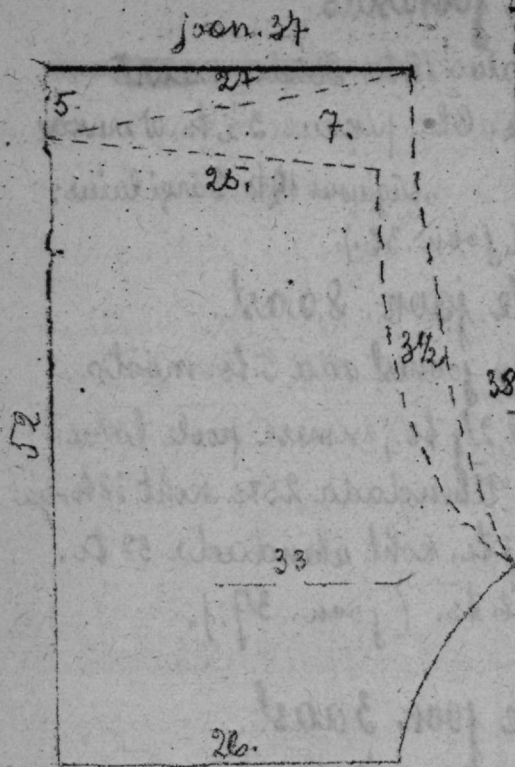 joon. 37
27
5.
7.
25.
34½
38
52
33
26.